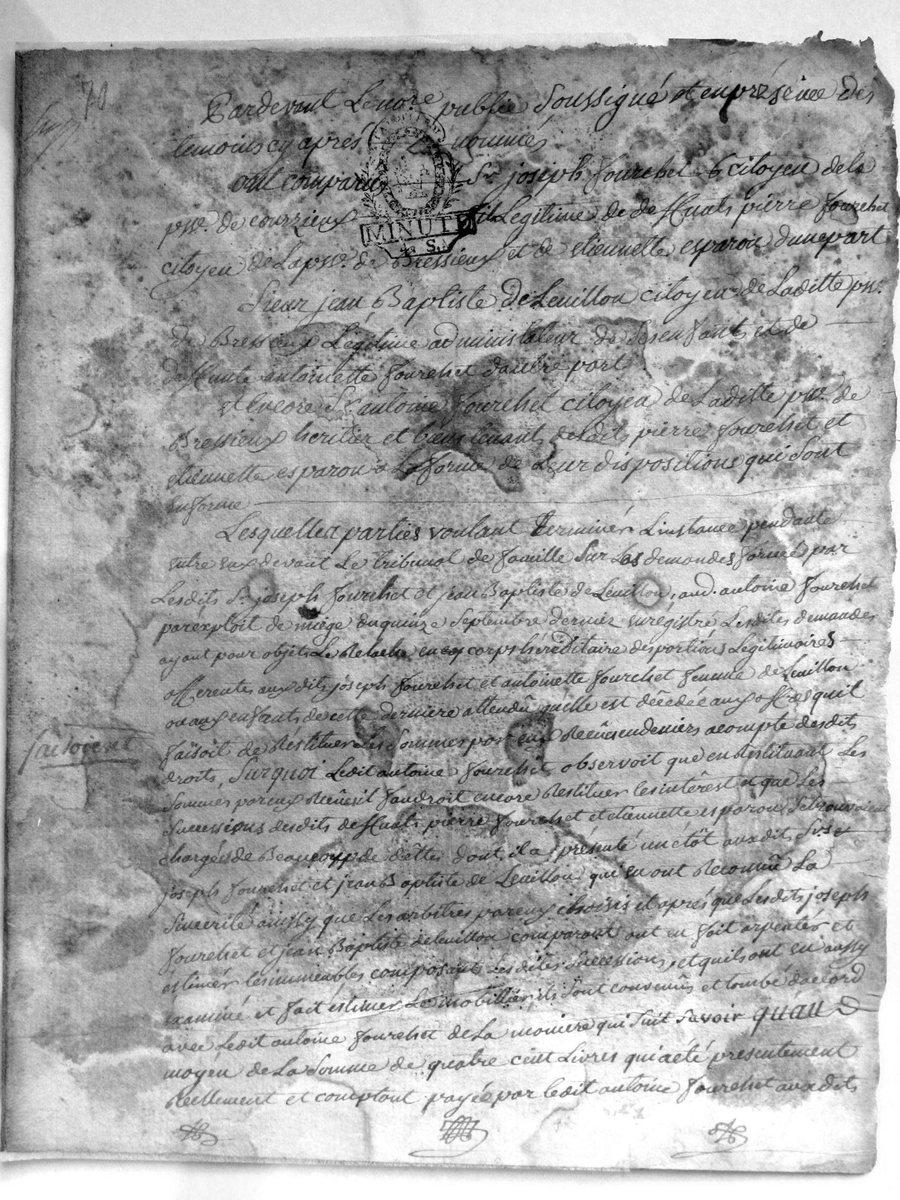 70
Pardevant Le nore public Soussigné et en présence des
temoins cy après nommés
ont comparu Sr joseph fourchet citoyen de la
psse. de courzieux fils Legitime de defunts pierre fourchet
citoyen de La psse. de Bressieux et de etiennette esparon d'une part
Sieur jean Baptiste De Leuillon citoyen de Laditte psse.
de Bressieux Legitime administrateur de Ses enfants et de
deffunte antoinette fourchet d'autre part
et Encore Sr. antoine fourchet citoyen de Laditte psse. de
Bressieux heritier et biens tenants desdits pierre fourchet et
etiennette esparon a La forme de Leur dispositions qui Sont
en forme
Lesquelles parties voulant terminér L'instance pendante
entre eux devant Le tribunal de famille Sur Les demandes formée par
Lesdits Sr. joseph fourchet et jean Baptiste de Leuillon, aud. antoine fourchet
par exploit de miege du quinze Septembre dernier enregistré Lesdites demandes
ayant pour objets Le Relache en corps hereditaire des portions Legitimaires
afferente aux dits joseph fourchet et antoinette fourchet femme de Leuillon
ou aux enfants de cette dernière attendu qu'elle est décédée aux offres quil
faisoit de Restituer Les Sommes par eux Recües en deniers acompte desdits
droits, Surquoi Ledit antoine fourchet observoit que en Restituant Les
Sommes par eux Recües il faudroit encore Restituer Les interêst et que Les
Successions desdits defunts pierre fourchet et etiennette esparon Se trouvoient
chargées de Beaucoup de dettes dont il a présenté un êtât auxdits Srs
joseph fourchet et jean Baptiste de Leuillon qui en ont Reconnû La
Sincerité ainsy que Les arbitres par eux choisis et après que Lesdits joseph
fourchet et jean Baptiste deleuillon comparants ont en fait arpenter et
estimér Les immeubles composants Lesdites Successions, et qu'ils ont en aussy
examiné et fait estimer Le mobillier ils Sont convenus et tombé d'accord
avec Ledit antoine fourchet de La maniere qui Suit Savoir quau
moyen de La Somme de quatre cent Livres qui a eté presentement
Réellement et comptant payée par Ledit antoine fourchet auxdits
MINUTE